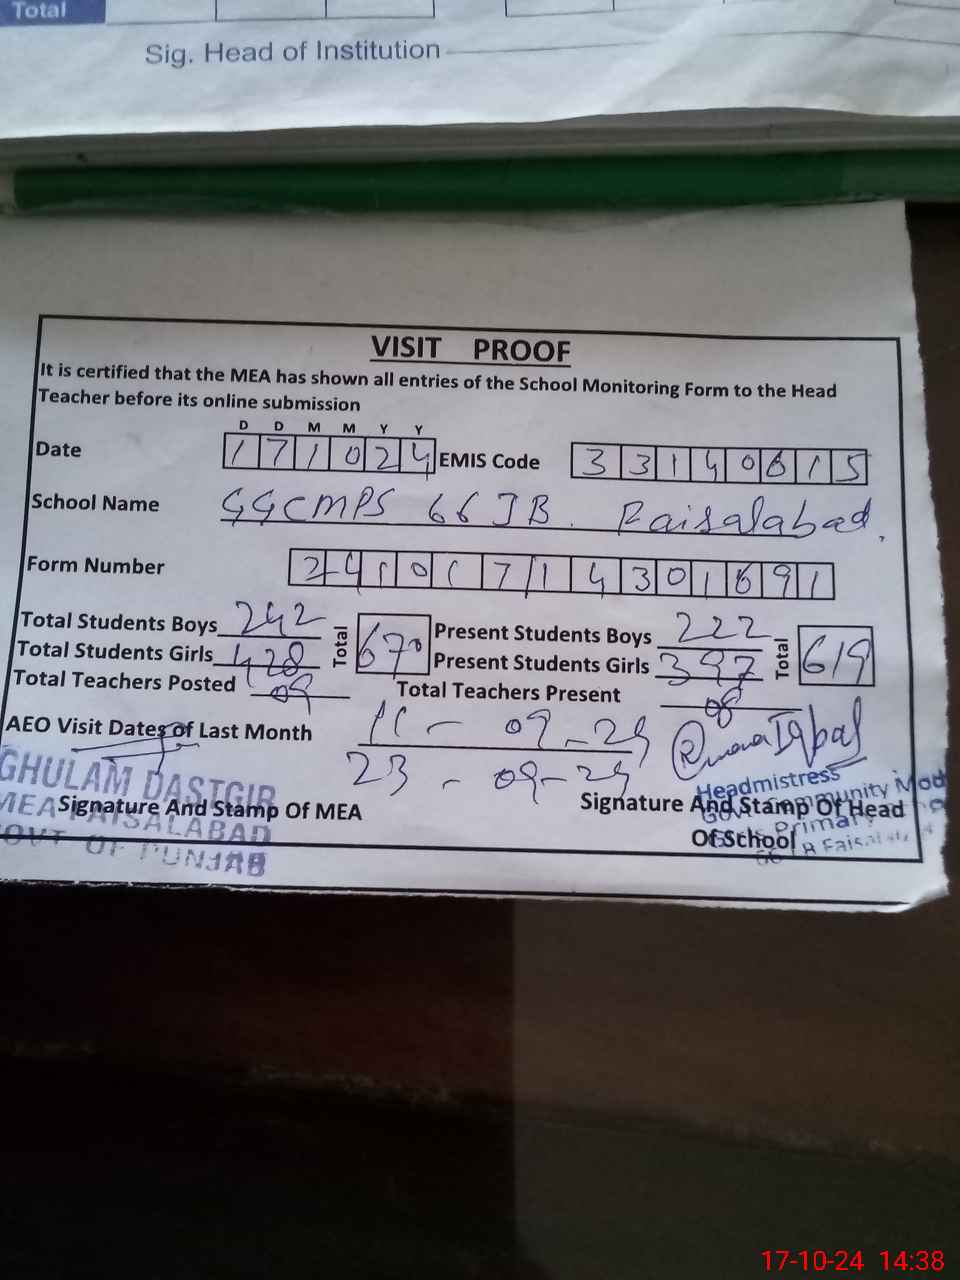 Total
Sig. Head of Institution
VISIT PROOF
It is certified that the MEA has shown all entries of the School Monitoring Form to the Head
Teacher before its online submission
D D M M Y Y
Date 1 7 1 0 2 4 EMIS Code 3 3 1 4 0 6 1 5
School Name GGCMPS 66 JB. Faisalabad.
Form Number 2 4 1 0 1 7 1 4 3 0 1 6 9 1
Total Students Boys 242 Total 670 Present Students Boys 222 Total 619
Total Students Girls 428 Present Students Girls 397
Total Teachers Posted 09 Total Teachers Present 08
AEO Visit Dates of Last Month 11 - 09 - 24
23 - 09 - 24
Iqbal
GHULAM DASTGIR
MEA FAISALABAD
GOVT OF PUNJAB
Signature And Stamp Of MEA
Headmistress
Govt. Community Mod
Primary
66 B Faisal
Signature And Stamp Of Head
Of School
17-10-24 14:38